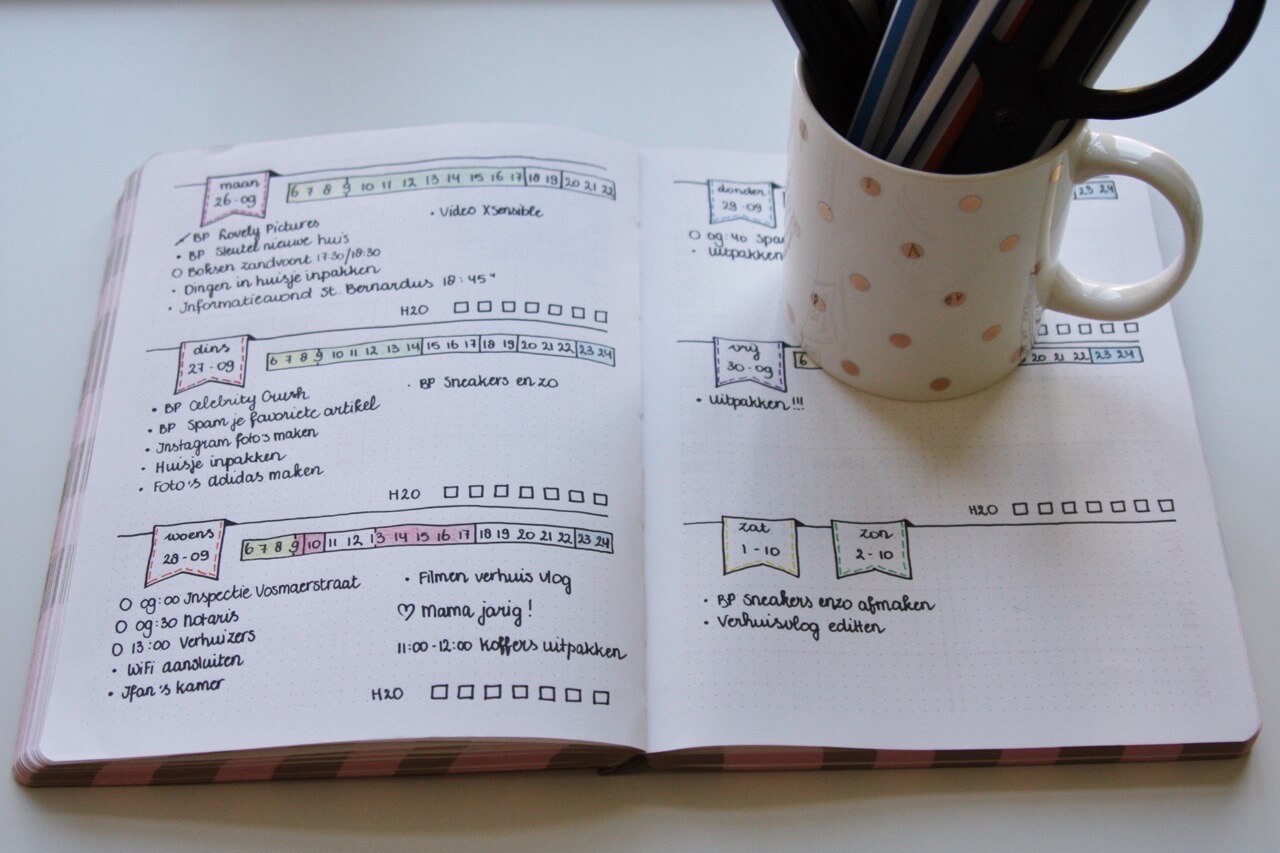 maan
26-09
6 7 8 9 10 11 12 13 14 15 16 17 18 19 20 21 22
• BP Rovely Pictures
• BP Sleutel nieuwe huis
O Boksen zandvoort 17:30/18:30
• Dingen in huisje inpakken
• Informatieavond St. Bernardus 18:45"
• Video XSensible
H2O
dins
27-09
6 7 8 9 10 11 12 13 14 15 16 17 18 19 20 21 22 23 24
• BP Celebrity Crush
• BP Spam je favoriete artikel
• Instagram foto's maken
• Huisje inpakken
• Foto's adidas maken
• BP Sneakers en zo
H2O
woens
28-09
6 7 8 9 10 11 12 13 14 15 16 17 18 19 20 21 22 23 24
O 09:00 Inspectie Vosmaerstraat
O 09:30 Notaris
O 13:00 Verhuizers
• WiFi aansluiten
• Ifan's kamer
• Filmen verhuis vlog
♡ Mama jarig!
11:00-12:00 koffers uitpakken
H2O
donder
29-09
23 24
O 09:40
• Uitpakken
vrij
30-09
6
20 21 22 23 24
• Uitpakken!!!
H2O
zat
1-10
zon
2-10
• BP Sneakers enzo afmaken
• Verhuisvlog editten